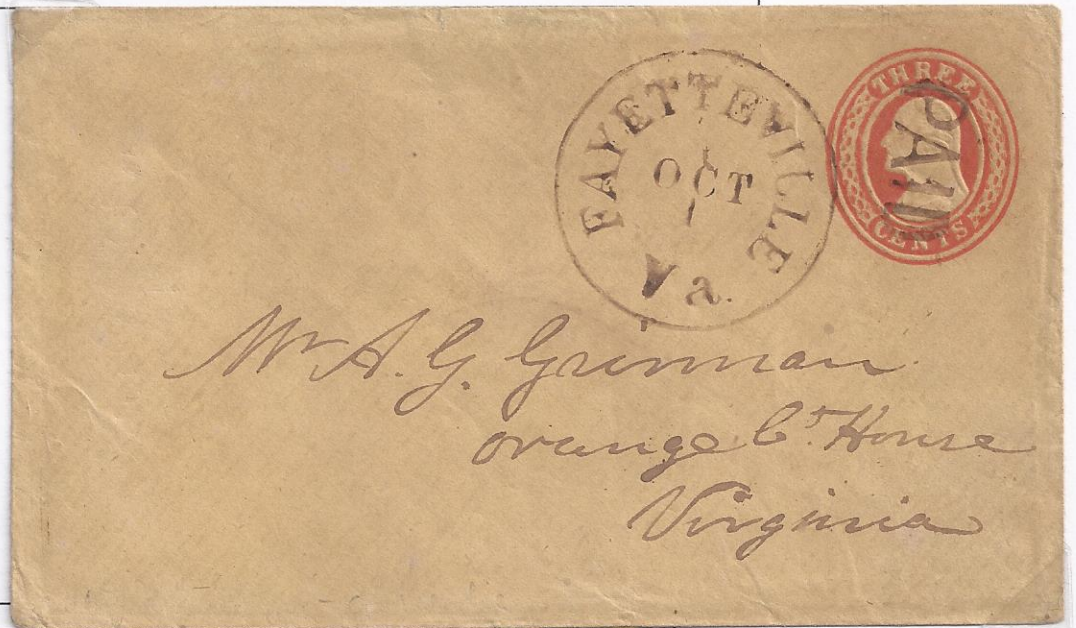 FAYETTEVILLE
OCT
1
Va.
THREE
CENTS
PAID
Mr A. G. Grinnan
Orange Ct. House
Virginia